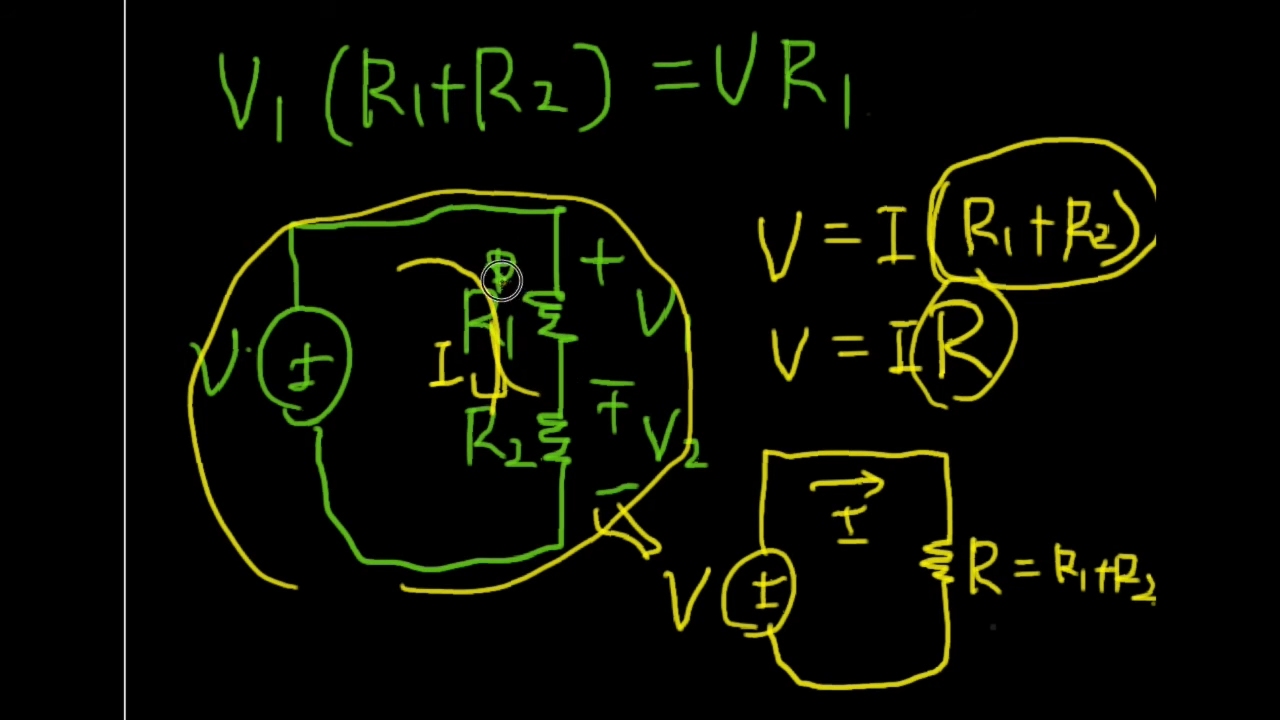 V₁ (R₁+R₂) = V R₁
V = I (R₁+R₂)
V = I R
+
R₁
V
V
±
I
−
+
R₂
V₂
−
I
V
±
R = R₁+R₂